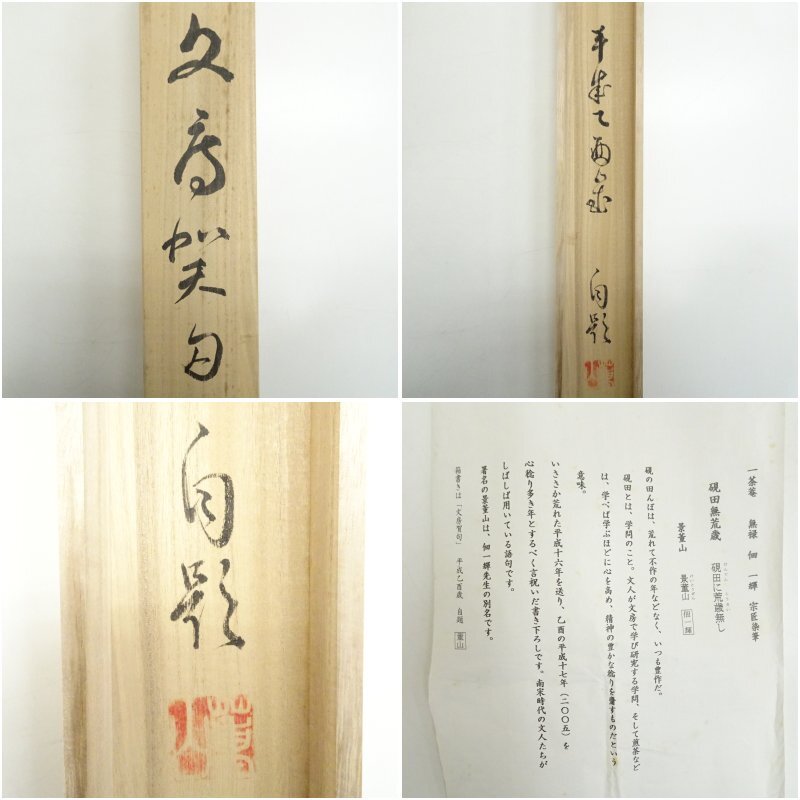 文房賀句
平成乙酉歳 自題
自題
一茶菴 無縁 佃 一輝 宗匠染筆
硯田無荒歳 硯田に荒歳無し
けんでん こうさい
景董山 景董山 佃一輝
けいとうざん
硯の田んぼは、荒れて不作の年などなく、いつも豊作だ。
硯田とは、学問のこと。文人が文房で学び研究する学問、そして煎茶など
は、学べば学ぶほどに心を高め、精神の豊かな稔りを齎すものだという
意味。
いささか荒れた平成十六年を送り、乙酉の平成十七年（二〇〇五）を
心稔り多き年とするべく言祝いだ書き下ろしです。南宋時代の文人たちが
しばしば用いている語句です。
署名の景董山は、佃一輝先生の別名です。
箱書きは「文房賀句」 平成乙酉歳 自題 董山